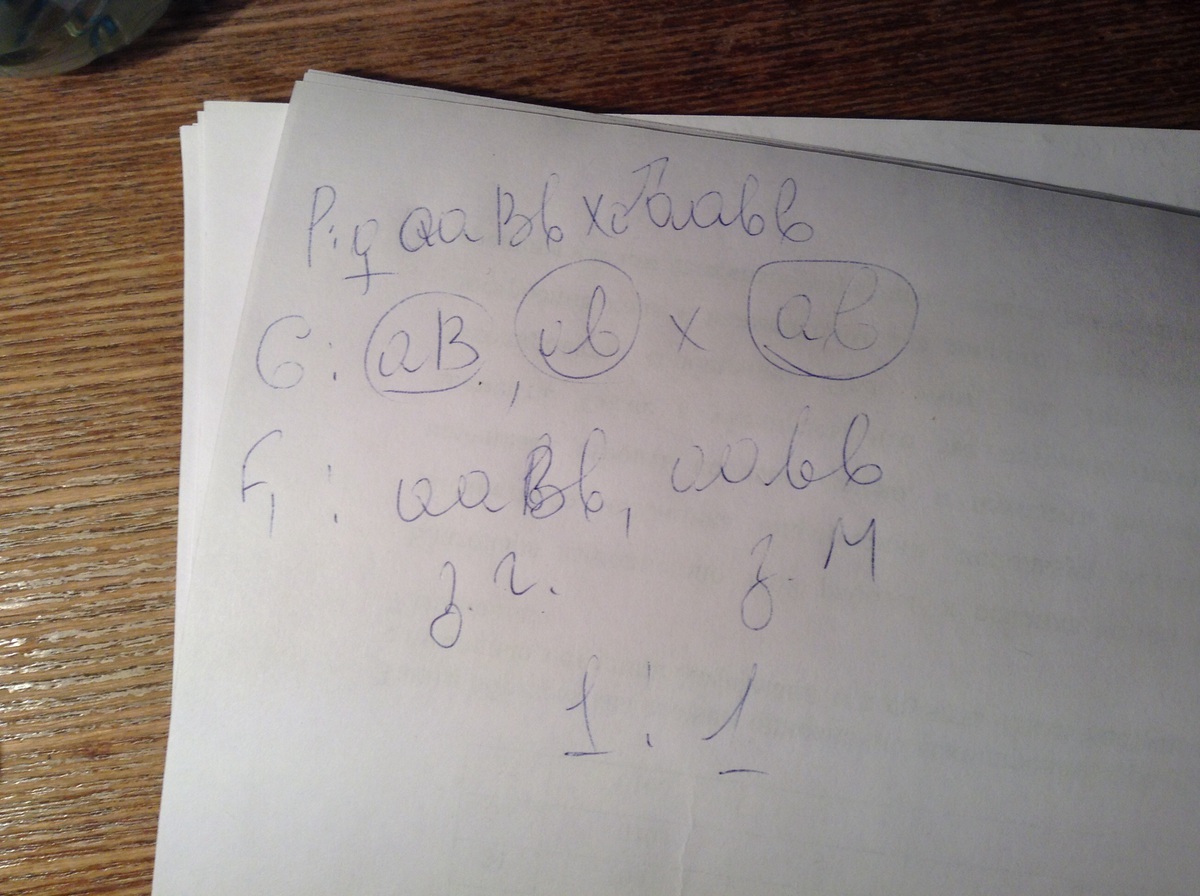 P: ♀ aaBb x ♂ aabb
G: aB, ab x ab
F₁: aaBb, aabb
з. г. з. М
1 : 1